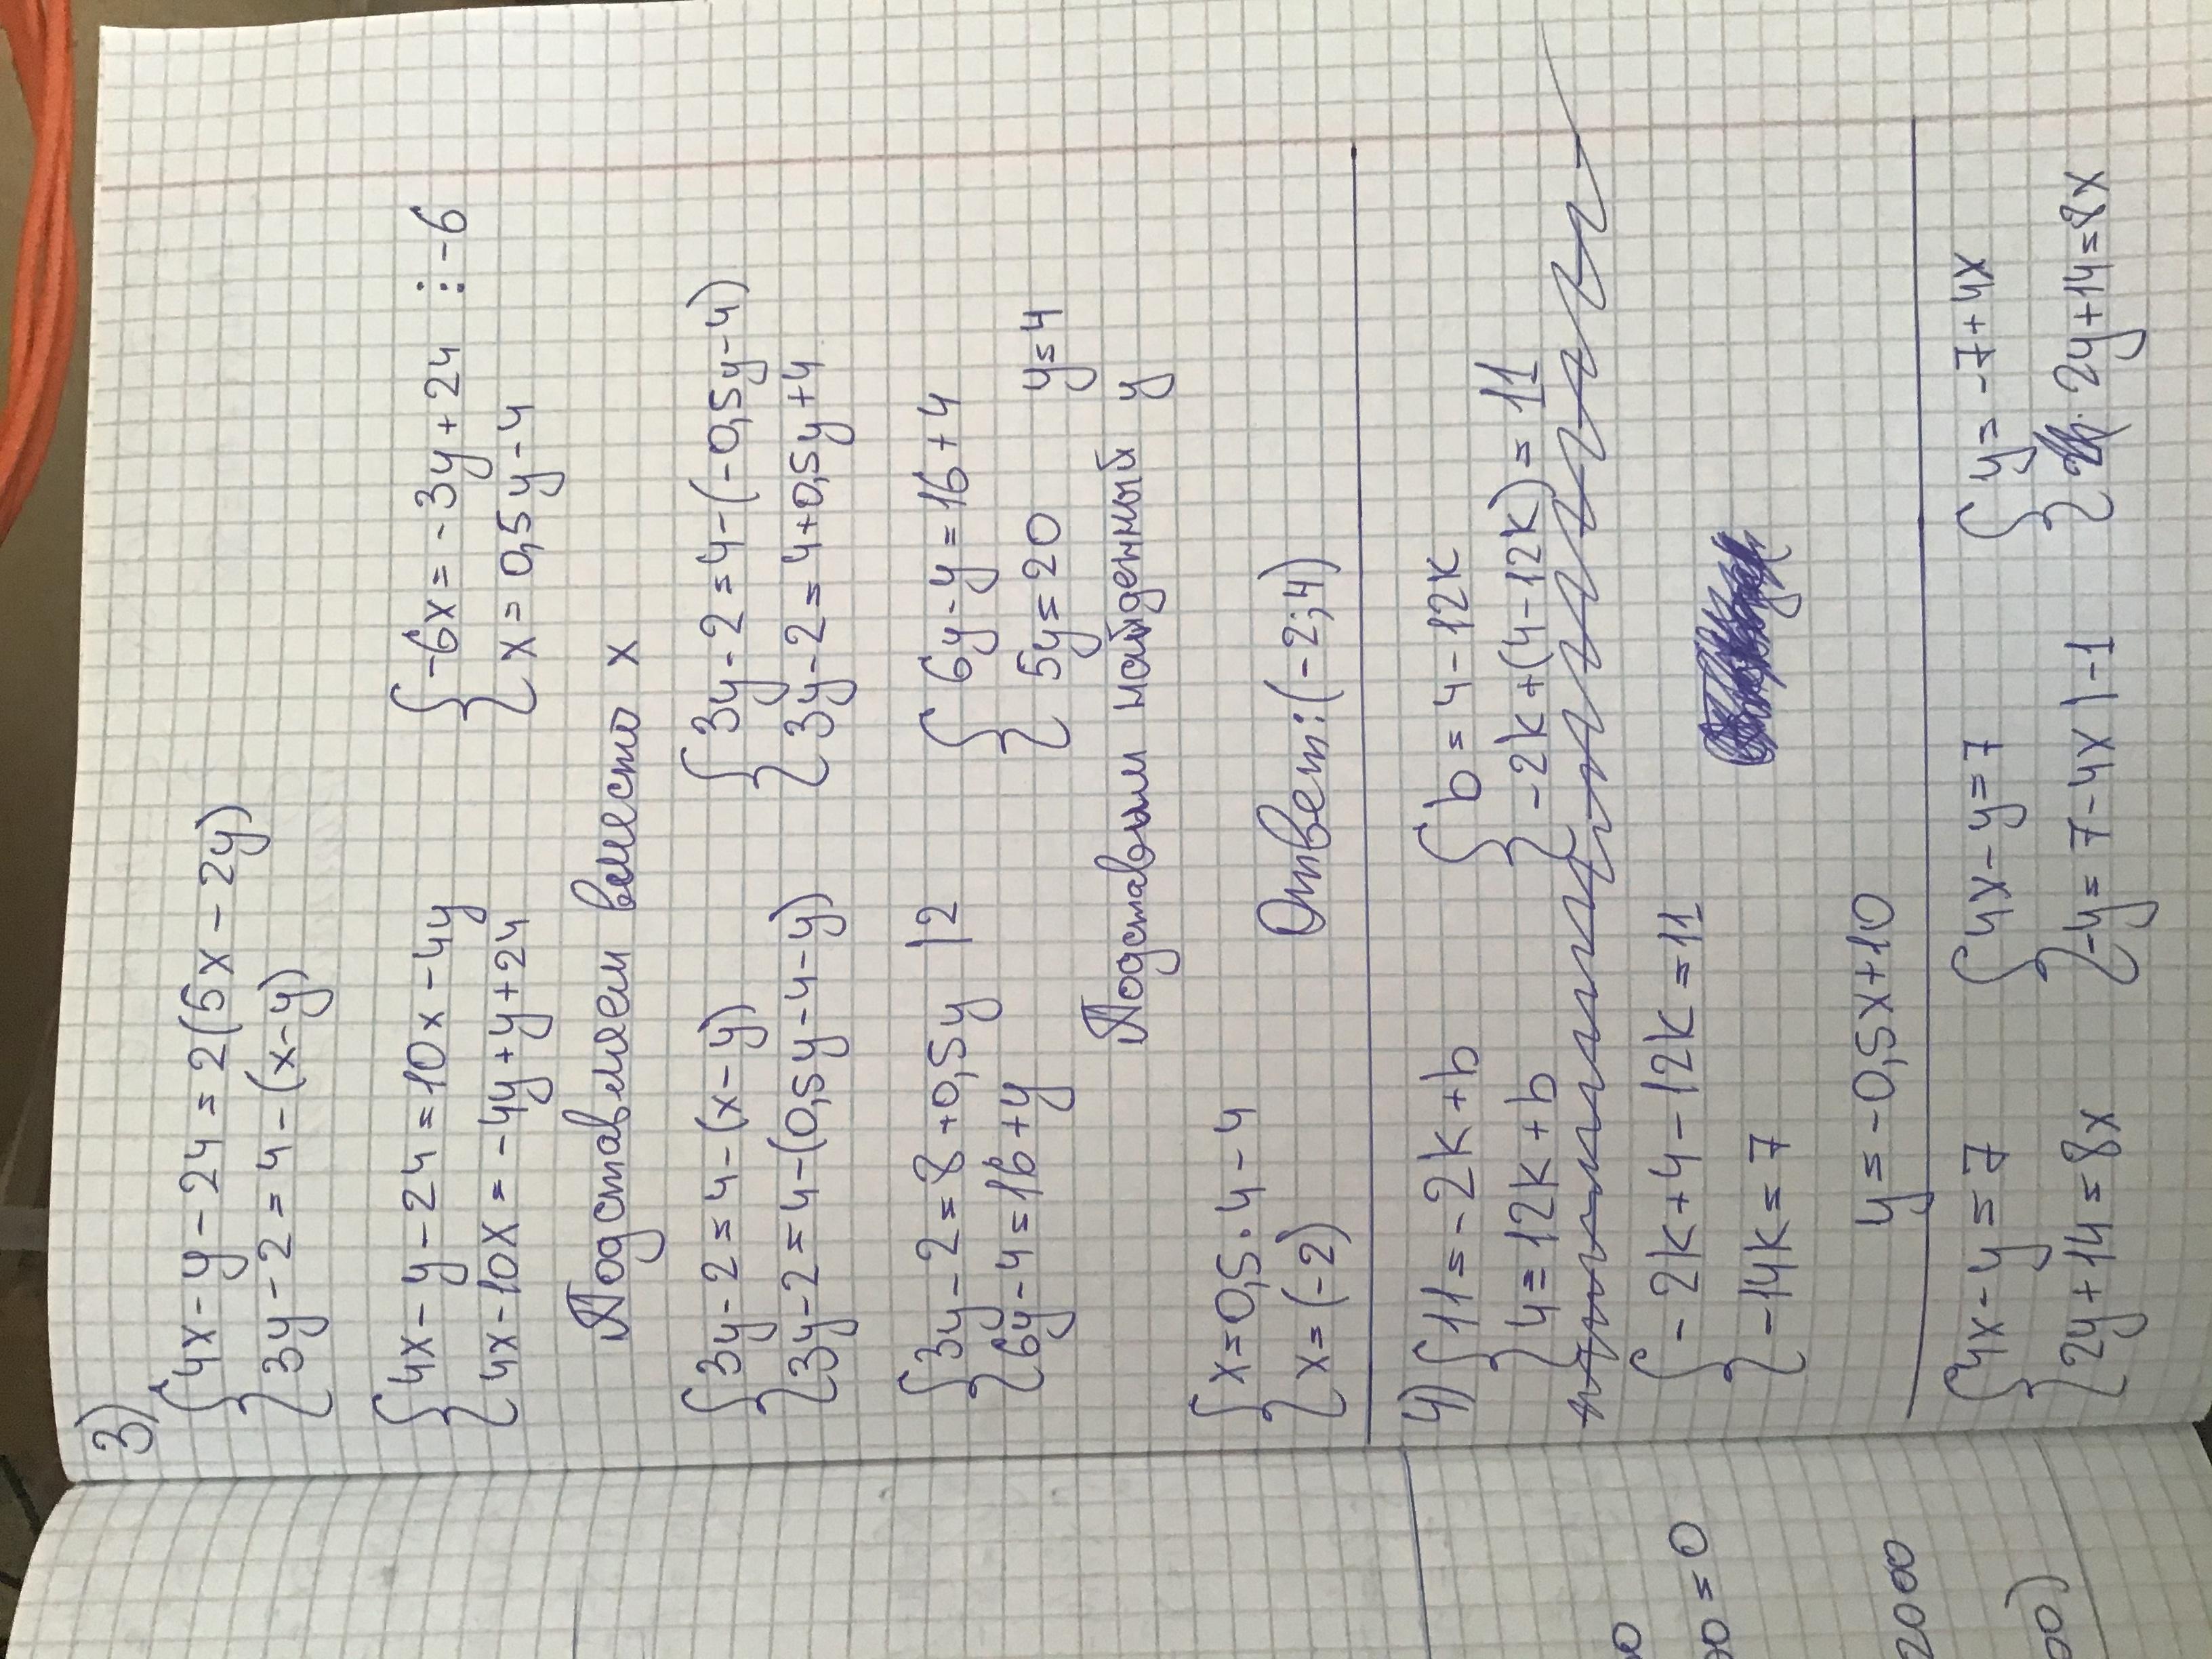 3)
{4x-y-24=2(5x-2y)
3y-2=4-(x-y)
{4x-y-24=10x-4y {-6x=-3y+24 ⋮-6
4x-10x=-4y+y+24 x=0,5y-4
Подставляем вместо x
{3y-2=4-(x-y) {3y-2=4-(-0,5y-4)
3y-2=4-(0,5y-4-y) 3y-2=4+0,5y+4
{3y-2=8+0,5y |2 {6y-y=16+4
6y-4=16+y 5y=20 y=4
Подставим найденный y
{x=0,5·4-4
x=(-2) Ответ:(-2;4)
4){11=-2k+b {b=4-12k
4=12k+b -2k+(4-12k)=11
{-2k+4-12k=11
-14k=7
y=-0,5x+10
{4x-y=7 {4x-y=7 {y=-7+4x
2y+14=8x -y=7-4x|-1 2y+14=8x
=0
2000
00)